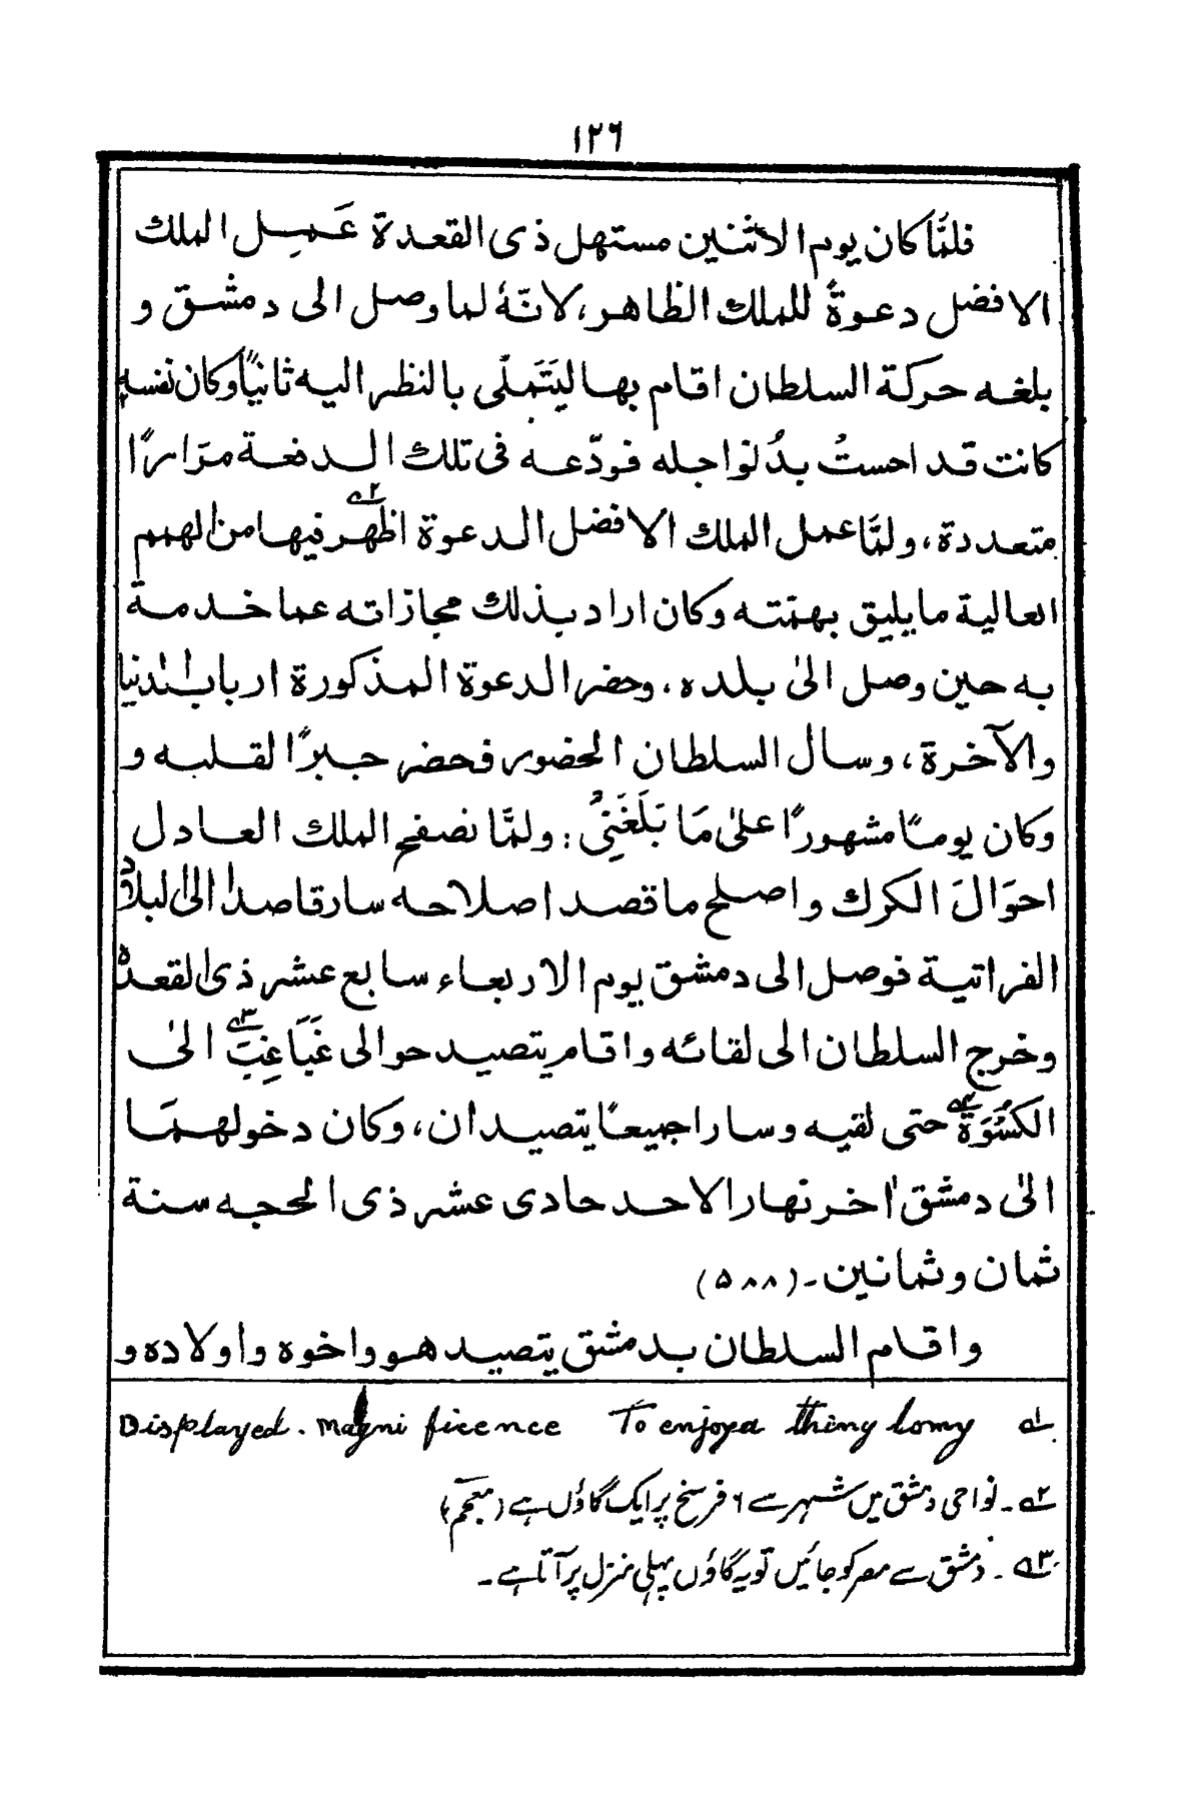 ١٢٦
فلمَّا كان يوم الاثنين مستهل ذى القعدة عَمِل الملك
الافضل دعوةً للملك الظاهر، لانّهٗ لما وصل الى دمشق و
بلغه حركة السلطان اقام بها ليَتَمَلّى بالنظر اليه ثانيًا وكان نفسه
كانت قد احستُ بدُنواجله فودّعه فى تلك الدفعة مرَارًا
متعددة، ولمَّا عمل الملك الافضل الدعوة اظهر۲ فيها من الهمم
العالية ما يليق بهمّته وكان اراد بذلك مجازاته عما خدمة
به حين وصل الىٰ بلده، وحضر الدعوة المذكورة ارباب الدنيا
والآخرة، وسال السلطان الحضور فحضر جبرًا لقلبه و
وكان يومًا مشهورًا علىٰ مَا بَلَغَنِىُ: ولمَّا نصفح الملك العادل
احوَالَ الكرك واصلح ما قصد اصلاحه سار قاصدا الىٰ البلاد
الفراتية فوصل الى دمشق يوم الاربعاء سابع عشر ذى القعدة
وخرج السلطان الى لقائه واقام يتصيد حوالى غَبَاغِبَ۳ الىٰ
الكُسْوَة۴ حتى لقيه وسارا جميعًا يتصيدان، وكان دخولهمَا
الىٰ دمشق اٰخر نهار الاحد حادى عشر ذى الحجه سنة
ثمان وثمانين۔ (۵۸۸)
واقام السلطان بدمشق يتصيد هو واخوه واولاده و
۱ Displayed. Magni ficence To enjoy a thing
۲۔ نواحی دمشق میں شہر سے ۶ فرسخ پر ایک گاؤں ہے (معجم)
۳۔ دمشق سے مصر کو جائیں تو یہ گاؤں پہلی منزل پر آتا ہے۔